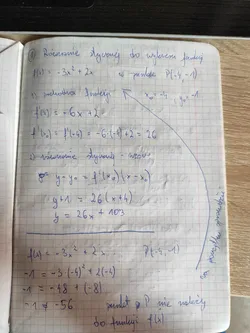 ① Równanie stycznej do wykresu funkcji
f(x) = -3x² + 2x w punkcie P(-4,-1)
1) pochodna funkcji x₀ = -4, y₀ = -1
f'(x) = -6x + 2
f'(x₀) = f'(-4) = -6·(-4)+2 = 26
2) równanie stycznej - wzór:
y - y₀ = f'(x₀)(x - x₀)
y + 1 = 26(x+4)
y = 26x + 103
f(x) = -3x² + 2x P(-4,-1)
-1 = -3·(-4)² + 2(-4)
-1 = -48 + (-8)
-1 ≠ -56 punkt P nie należy
do funkcji f(x)